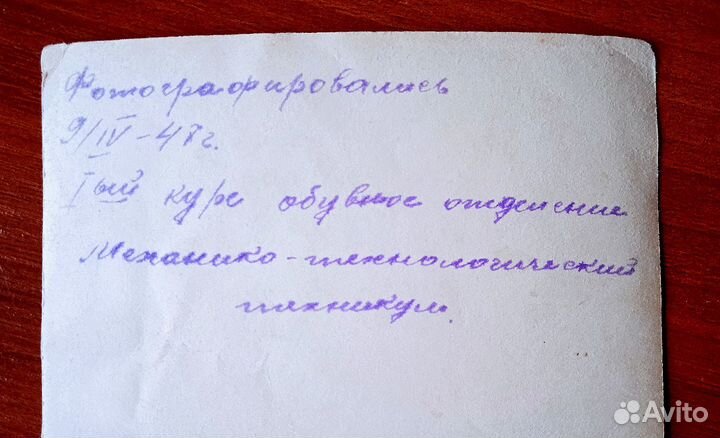 Фотографировались
9/IV-47г.
Iый курс обувное отделение
Механико-технологический
техникум.
Avito